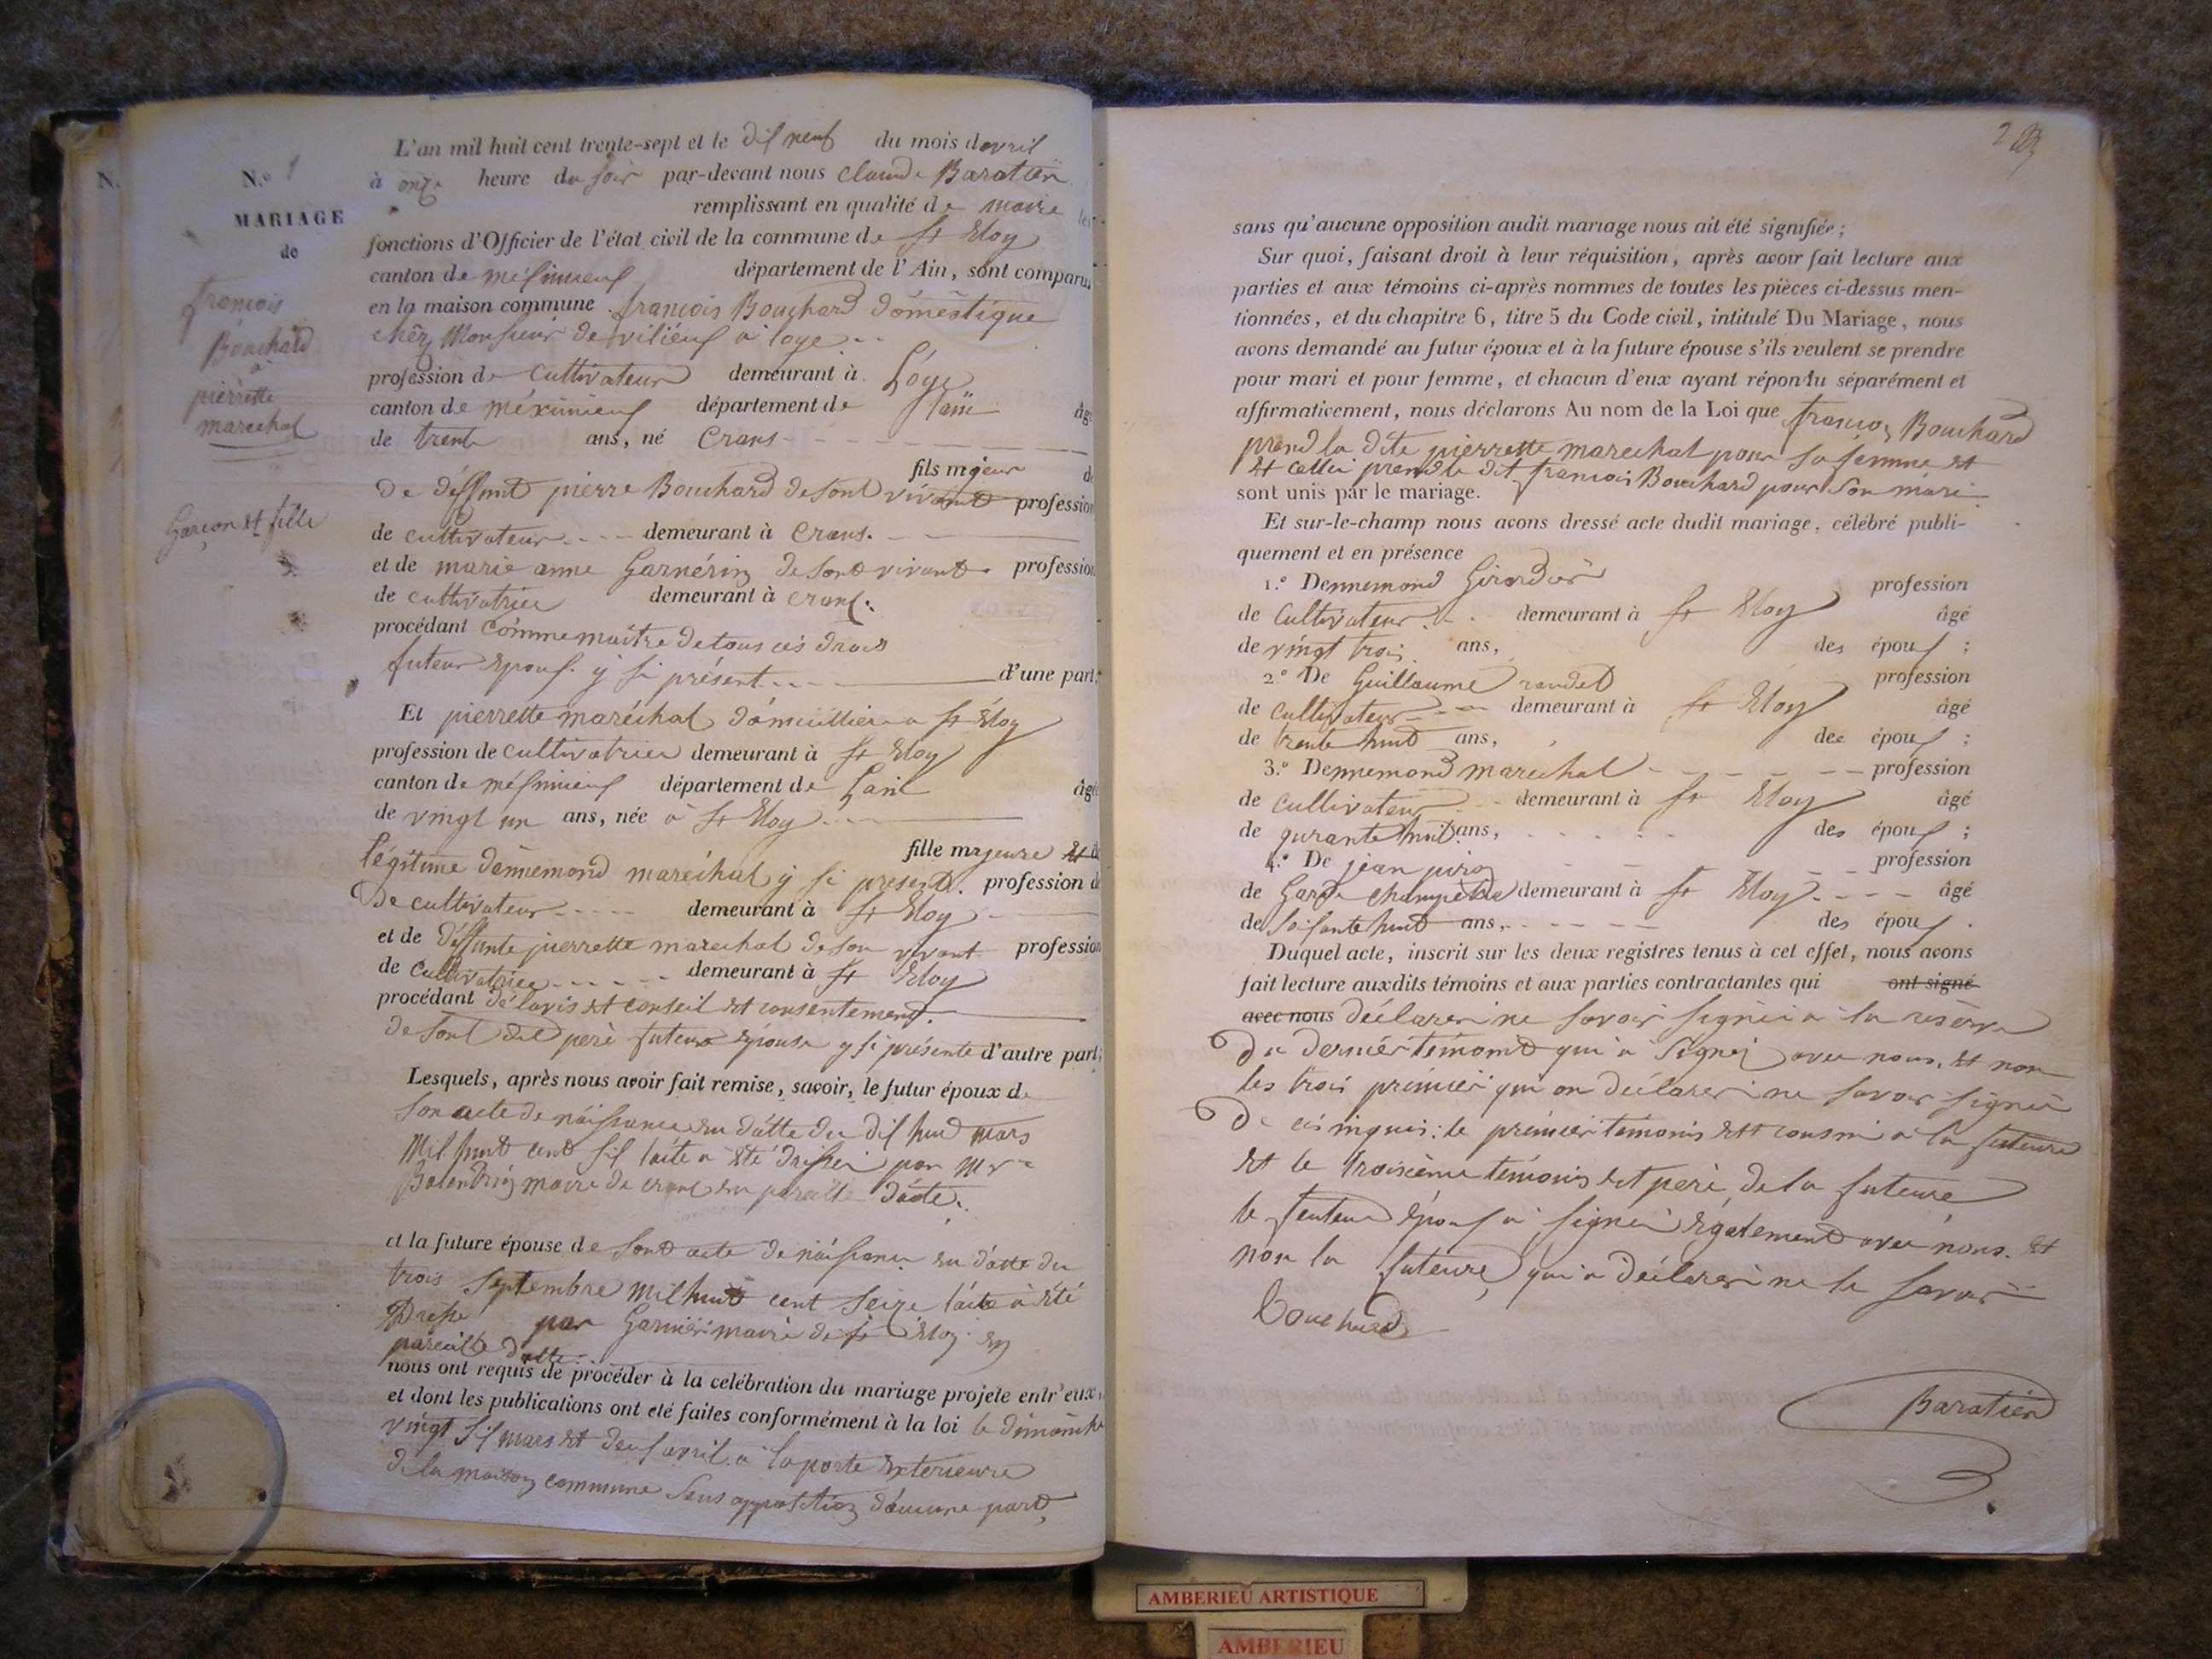 N.
N.º 1
MARIAGE
de
françois
Bouchard
a
pièrrette
marechal
Garçon et fille
L'an mil huit cent trente-sept et le dix neuf du mois d avril
à onze heure du soir par-devant nous claude Baratien
remplissant en qualité de maire les
fonctions d'Officier de l'état civil de la commune de st Eloy
canton de méximieux département de l'Ain, sont comparus
en la maison commune françois Bouchard domestique
chez Monsieur de vilieux a loye
profession de cultivateur demeurant à Loye
canton de méximieux département de l'ain âgé
de trente ans, né Crans
fils majeur de
de deffunt pierre Bouchard de sont vivant profession
de cultivateur demeurant à Crans.
et de marie anne Garnérin de sont vivant profession
de cultivatrice demeurant à crans.
procédant comme maitre de tous ces droits
futeur epoux y si présent d'une part;
Et pierrette maréchal domicilliere a st Eloy
profession de cultivatrice demeurant à st Eloy
canton de méximieux département de Lain âgée
de vingt un ans, née à st Eloy
fille majeure et de
légitime dennemond maréchal y si présent. profession de
de cultivateur demeurant à st Eloy
et de deffunte pierrette marechal de son vivant profession
de cultivatrice demeurant à st Eloy
procédant de lavis et conseil et consentement
de sont dit perè futeure épouse y si présente d'autre part;
Lesquels, après nous avoir fait remise, savoir, le futur époux de
son acte de naissance en datte du dix huit mars
mil huit cent six lacte a été dressé par Mr
maire de crans en pareille date.
et la future épouse de sont acte de naissance en datte du
trois septembre mil huit cent seize lacte a été
Dresse par Garnier maire de st Eloy en
pareille datte
nous ont requis de procéder à la celébration du mariage projeté entr'eux
et dont les publications ont été faites conformément à la loi le dimanche
vingt six mars et deux avril a la porte extérieure
de la maison commune sans opposition d'aucune part,
sans qu'aucune opposition audit mariage nous ait été signifiée;
Sur quoi, faisant droit à leur réquisition, après avoir fait lecture aux
parties et aux témoins ci-après nommes de toutes les pièces ci-dessus men-
tionnées, et du chapitre 6, titre 5 du Code civil, intitulé Du Mariage, nous
avons demandé au futur époux et à la future épouse s'ils veulent se prendre
pour mari et pour femme, et chacun d'eux ayant répondu séparément et
affirmativement, nous déclarons Au nom de la Loi que françois Bouchard
prend la dite pierrette marechal pour sa femme et
et celleci prend le dit françois Bouchard pour son mari
sont unis par le mariage.
Et sur-le-champ nous avons dressé acte dudit mariage, célébré publi-
quement et en présence
1.º Dennemond Girardier profession
de cultivateur demeurant à st Eloy âgé
de vingt trois ans, des époux;
2.º De Guillaume profession
de cultivateur demeurant à st Eloy âgé
de trente huit ans, des époux;
3.º Dennemond marechal profession
de cultivateur demeurant à st Eloy âgé
de qurante huit ans, des époux;
4.º De jean profession
de Garde champêtre demeurant à st Eloy âgé
de soisante huit ans, des époux.
Duquel acte, inscrit sur les deux registres tenus à cet effet, nous avons
fait lecture auxdits témoins et aux parties contractantes qui ont signé
avec nous déclarer ne savoir signer a la réserve
du dernier témoint qui a signé avec nous, et non
les trois prémier qui on déclarer ne savoir signer
de ce inquis: le prémier témonis est cousin a la futeure
et le troisième témonis est perè de la futeure
le feuteur époux a signer également avec nous. et
non la futeure, qui a déclarer ne le savoir
Bouchard
Baratien
AMBERIEU ARTISTIQUE
AMBERIEU